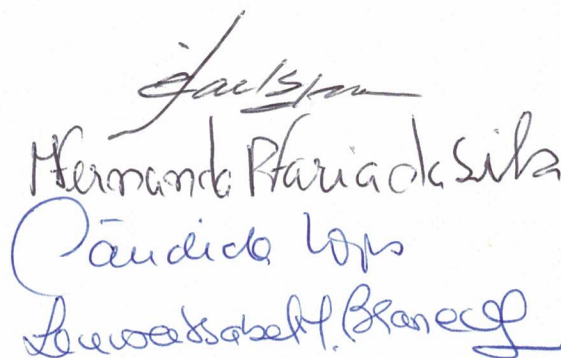 Jackson
Fernando P Faria da Silva
Cândida Lopes
Isabel M. Branco